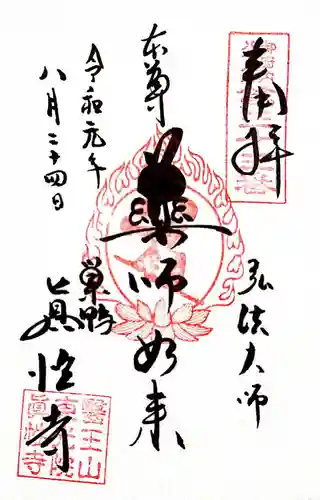 奉拝
弘法大師
本尊
薬師如来
令和元年
八月二十四日
巣鴨
眞性寺
醫王山
東光院
眞性寺